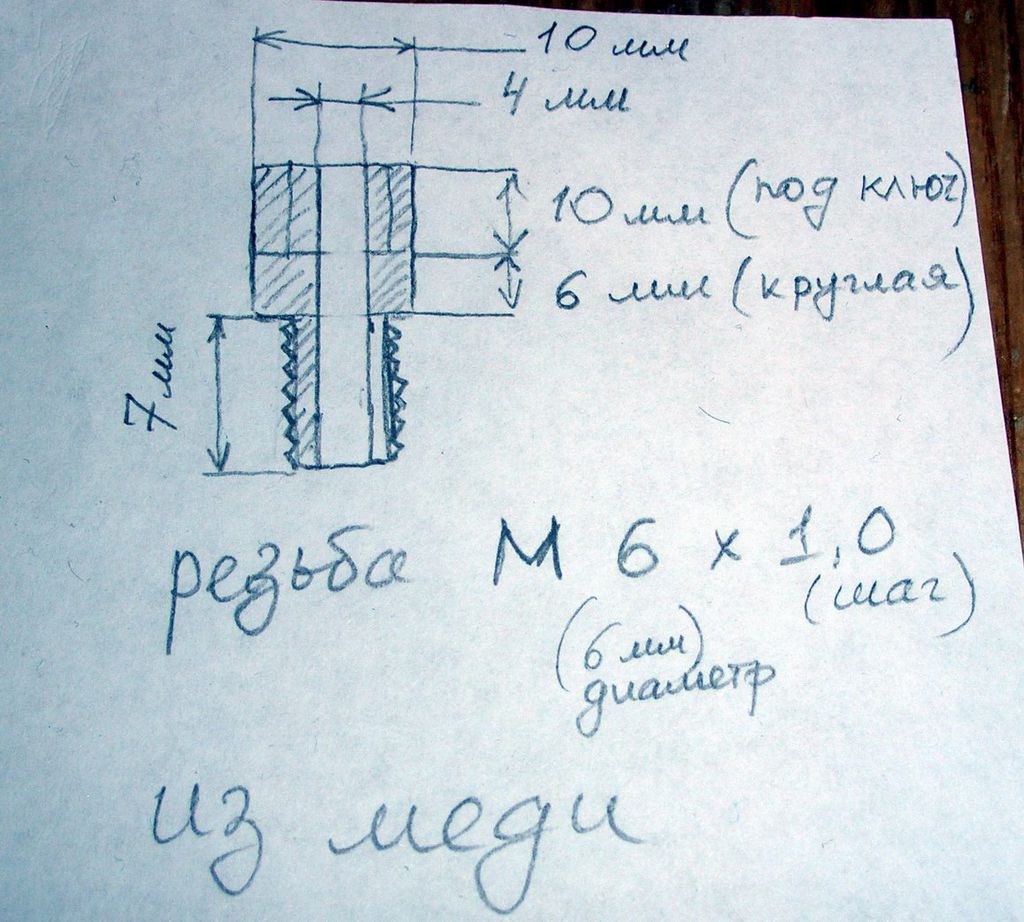 10 мм
4 мм
10 мм (под ключ)
6 мм (круглая)
7 мм
резьба М 6 х 1,0
(шаг)
(6 мм)
диаметр
из меди